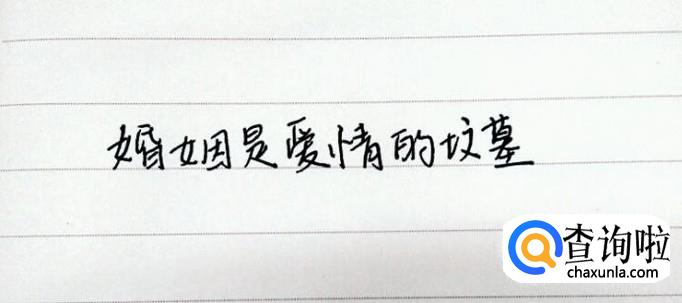 婚姻是爱情的坟墓
查询啦
chaxunla.com